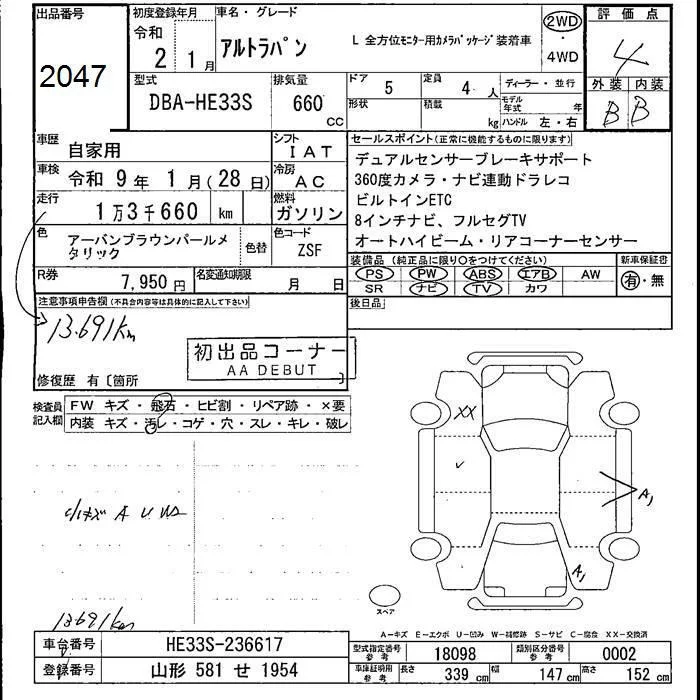 出品番号
2047
初度登録年月
令和
2 1月
車名・グレード
アルトラパン
L 全方位モニター用カメラパッケージ装着車
2WD
・
4WD
評価点
4
外装 内装
B B
型式
DBA-HE33S
排気量
660
CC
ドア 5
定員 4 人
形状
積載 kg
ディーラー・並行
モデル年式 年
ハンドル 左・右
車歴
自家用
シフト
IAT
車検 令和 9年 1月(28日)
冷房
AC
走行
1万3千660 km
燃料
ガソリン
色
アーバンブラウンパールメタリック
色替
色コード
ZSF
R券
7,950円
名変通知期限
月 日
セールスポイント(正常に機能するものに限ります)
デュアルセンサーブレーキサポート
360度カメラ・ナビ連動ドラレコ
ビルトインETC
8インチナビ、フルセグTV
オートハイビーム・リアコーナーセンサー
装備品 (純正品に限り○をつけてください)
新車保証書
PS PW ABS エアB AW
SR ナビ TV カワ
有・無
後日品
注意事項申告欄(不具合内容等は具体的に記入して下さい)
13.691Km
初出品コーナー
AA DEBUT
修復歴 有〔箇所 〕
検査員記入欄
FW キズ・飛石・ヒビ割・リペア跡・×要
内装 キズ・汚レ・コゲ・穴・スレ・キレ・破レ
小キズ A U W2
XX
A1
A1
スペア
13691km
A-キズ E-エクボ U-凹み W-補修跡 S-サビ C-腐食 XX-交換済
車台番号
HE33S-236617
登録番号
山形 581 せ 1954
型式指定番号 参考 18098
類別区分番号 参考 0002
車庫証明用 参考 長さ 339 cm 幅 147 cm 高さ 152 cm